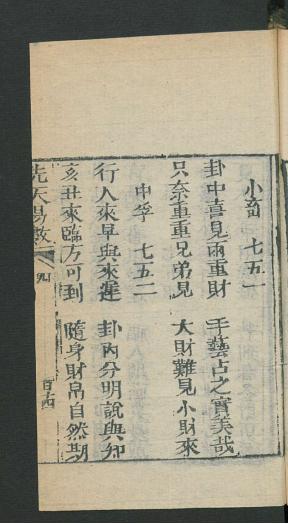 小畜　七五一
卦中喜見兩重財　手藝占之實美哉
只奈重重兄弟見　大財難見小財來
中孚　七五二
行人來早與來遲　卦內分明說與知
亥丑來臨方可到　隨身財帛自然期
先天易數　九　百十四